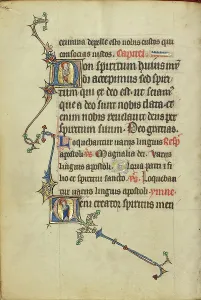 crimina depelle est nobis custos qui
consocias iustos. Capitulum
Non spiritum huius mun
di accepimus sed spiri
tum qui ex deo est ut sciam
que a deo sunt nobis data
enim nobis reuelauit deus per
spiritum suum. Deo gratias.
Loquebantur uariis linguis
apostoli Magnalia dei. Uariis
linguis apostoli. Gloria patri
lio et spiritui sancto Loqueban
tur uariis linguis apostoli ymne
Ueni creator spiritus men